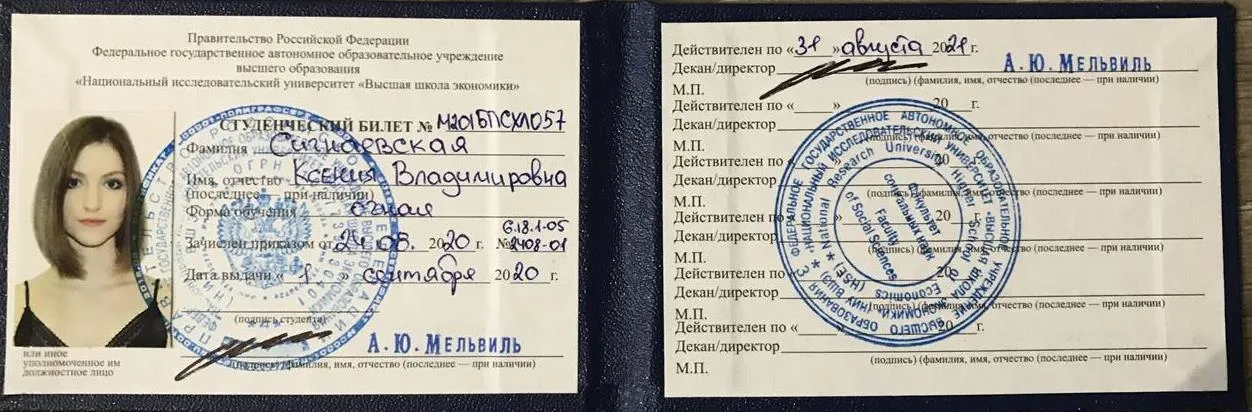 Правительство Российской Федерации
Федеральное государственное автономное образовательное учреждение
высшего образования
«Национальный исследовательский университет «Высшая школа экономики»
СТУДЕНЧЕСКИЙ БИЛЕТ № М201БПСХЛ057
Фамилия
Имя, отчество Ксения Владимировна
(последнее — при наличии)
Форма обучения очная
Зачислен приказом от 24.08. 2020 г. № 6.18.1-05
2408-01
Дата выдачи « 1 » сентября 2020 г.
(подпись студента)
А. Ю. МЕЛЬВИЛЬ
или иное
уполномоченное им
должностное лицо
(подпись) (фамилия, имя, отчество (последнее — при наличии)
Действителен по «31» августа 2021 г.
Декан/директор А. Ю. МЕЛЬВИЛЬ
(подпись) (фамилия, имя, отчество (последнее — при наличии)
М.П.
Действителен по « » 20 г.
Декан/директор
(подпись) (фамилия, имя, отчество (последнее — при наличии)
М.П.
Действителен по « 20 г.
Декан/директор
(подпись) (фамилия, имя, отчество (последнее — при наличии)
М.П.
Действителен по « 20 г.
Декан/директор
(подпись) (фамилия, имя, отчество (последнее — при наличии)
М.П.
Действителен по « 20 г.
Декан/директор
(подпись) (фамилия, имя, отчество (последнее — при наличии)
М.П.
Действителен по « » 20 г.
Декан/директор
(подпись) (фамилия, имя, отчество (последнее — при наличии)
М.П.
National Research University Higher School of Economics (HSE)
Факультет
социальных наук
Faculty
of Social Sciences